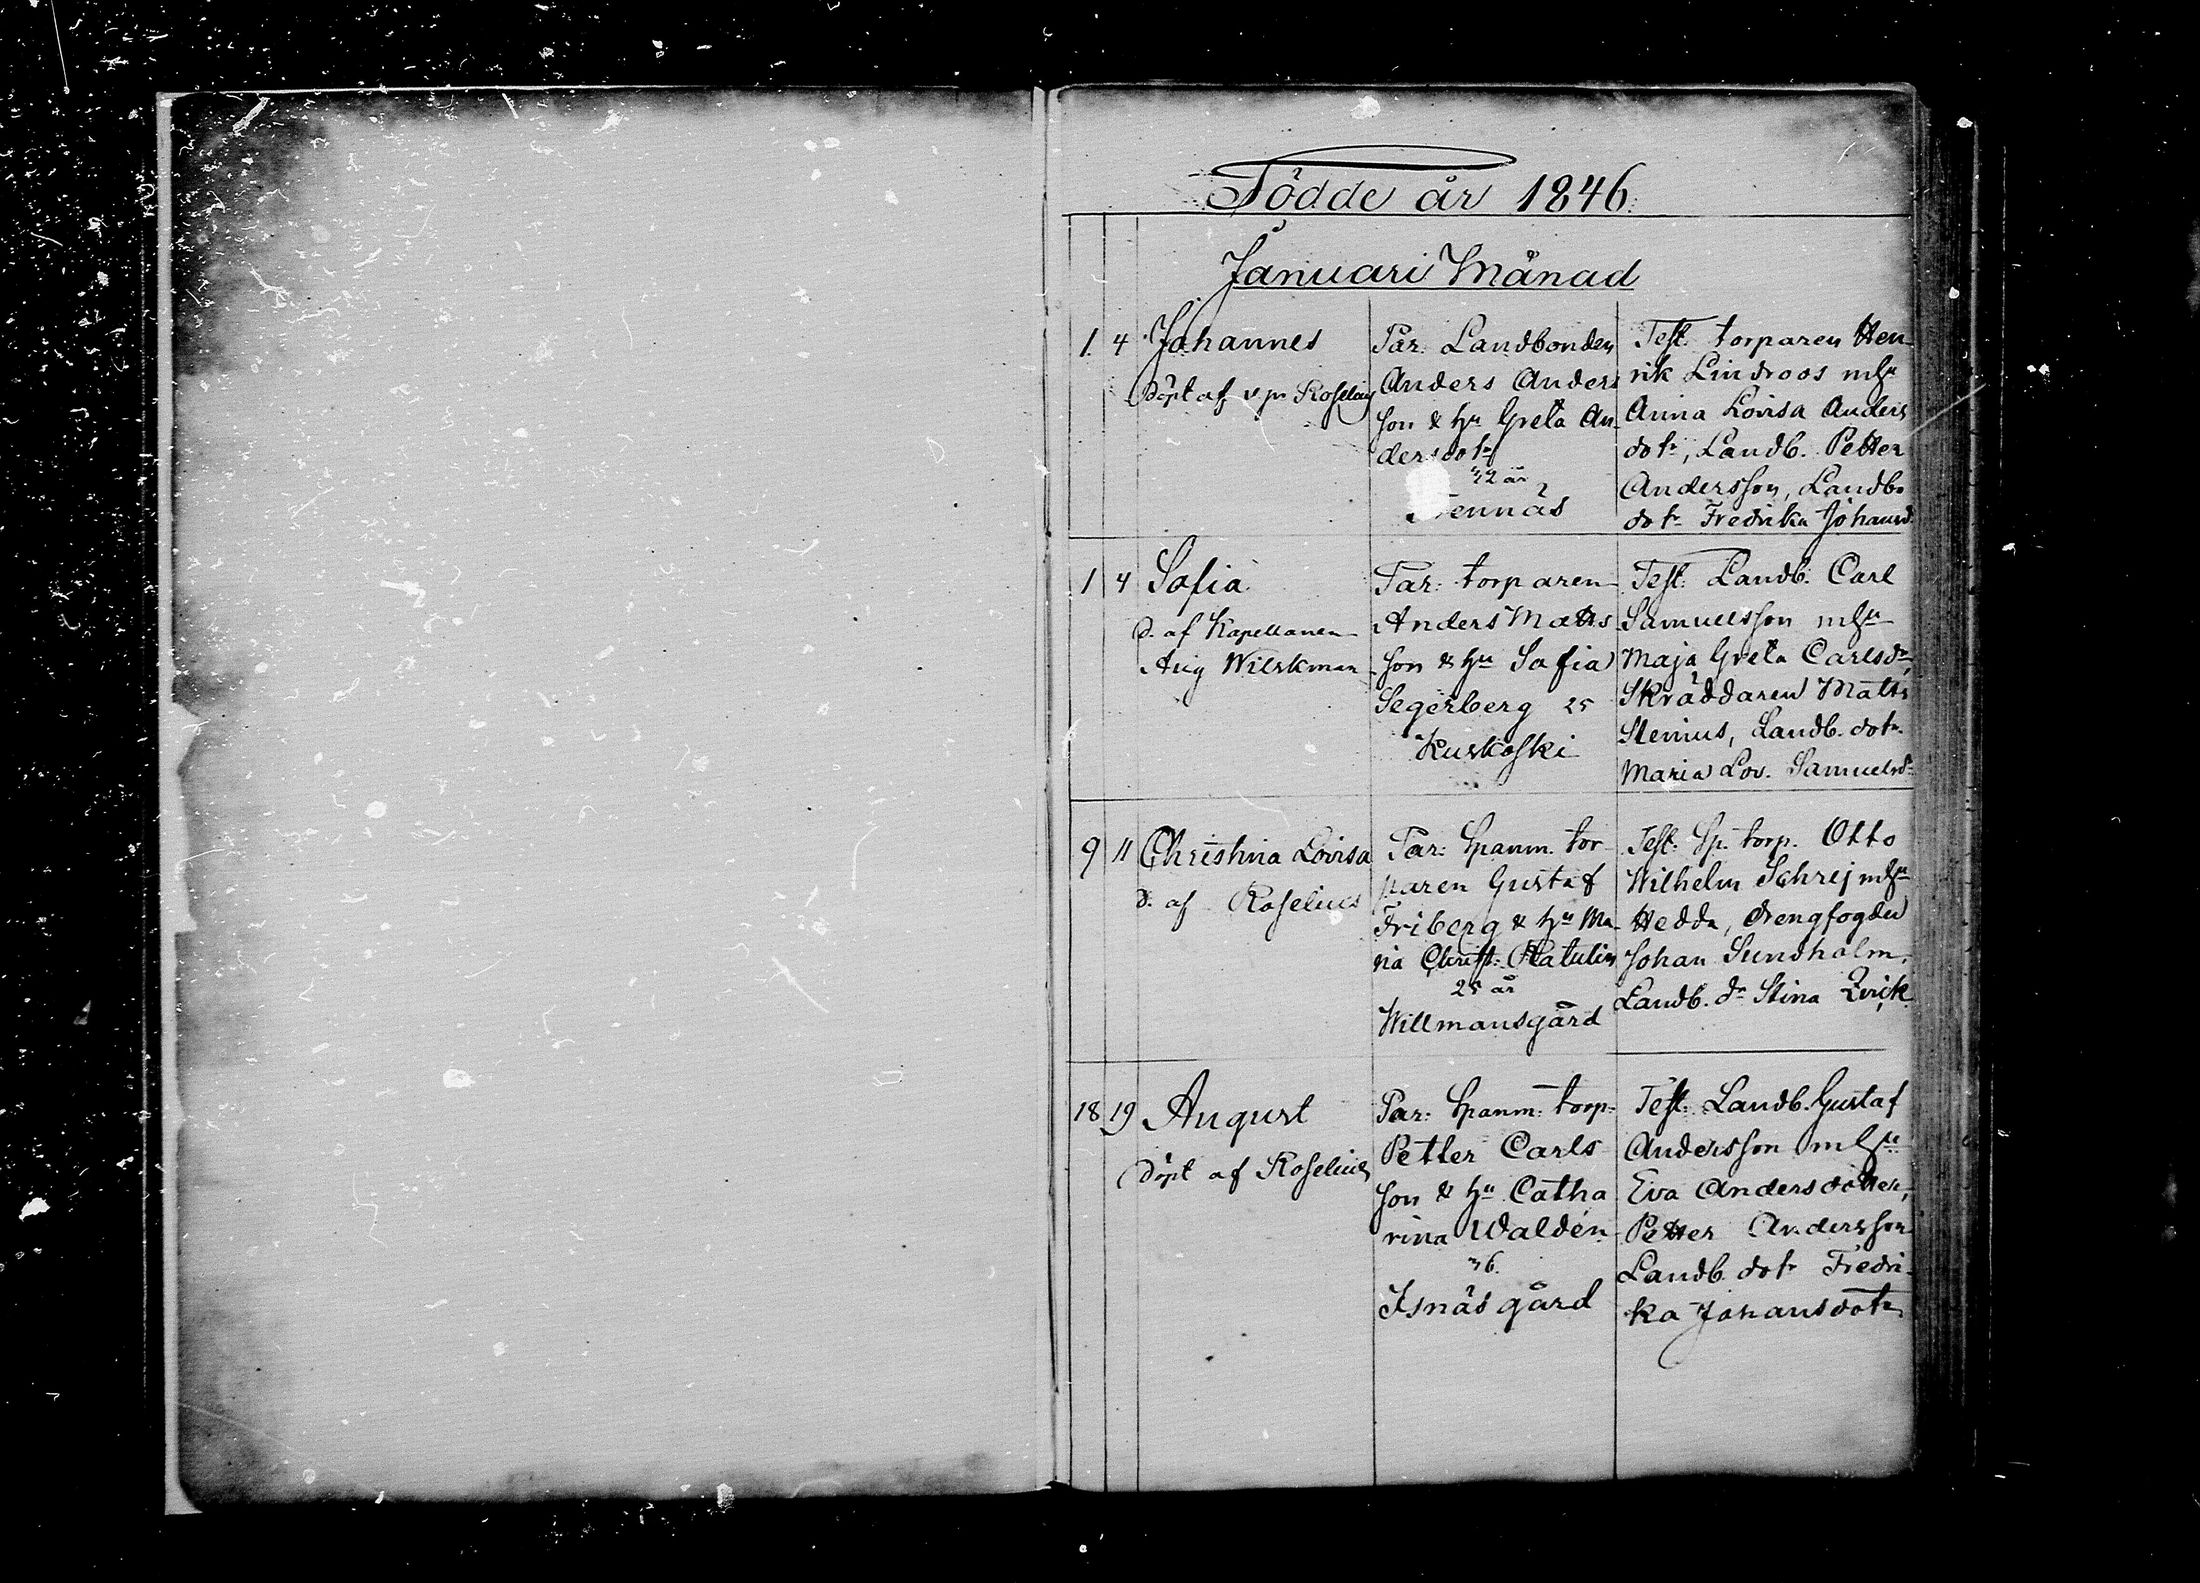 Födde år 1846.
Januari Månad
1. 4 Johannes
Döpt af v. pr Roselius
Par. Landbonden
Anders Anders
son & hu Greta An-
dersdotr
42 år
Test. torparen Hen-
rik Lindroos m hu
Anna Lovisa Anders
dotr, Landb. Petter
Andersson, Landbo
dotr Fredrika Johansd.
1 4 Sofia
d. af Kapellanen
Aug Wilskman
Par: torparen
Anders Matts
son & hu Sofia
Segerberg 25
Kuskoski
Test. Landb. Carl
Samuelsson m hu
Maja Greta Carlsdr,
Skräddaren Matts
Stenius, Landb. dotr
Maria Lov. Samuelsdr
9 11 Christina Lovisa
d. af Roselius
Par: Spanm. tor
paren Gustaf
Friberg & hu Ma
ria Christ: Platulin
25 år
Willmansgård
Test. Sp. torp. Otto
Wilhelm Schrej m hu
Hedda, drengfogden
Johan Sundholm,
Landb. dr Stina Qvick
18 19 August
Döpt af Roselius
Par: Spanm: torp:
Petter Carls
son & hu Catha
rina Waldén
36.
Isnäs gård
Test. Landb. Gustaf
Andersson m hu
Eva Andersdotter,
Petter Andersson
Landb. dotr Fredri-
ka Johansdotr